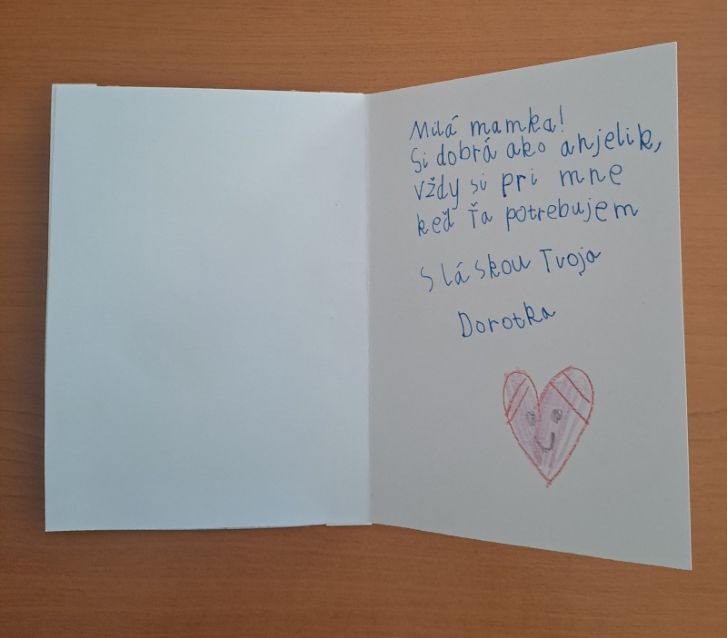 Milá mamka!
Si dobrá ako anjelik,
vždy si pri mne
keď Ťa potrebujem
S láskou Tvoja
Dorotka